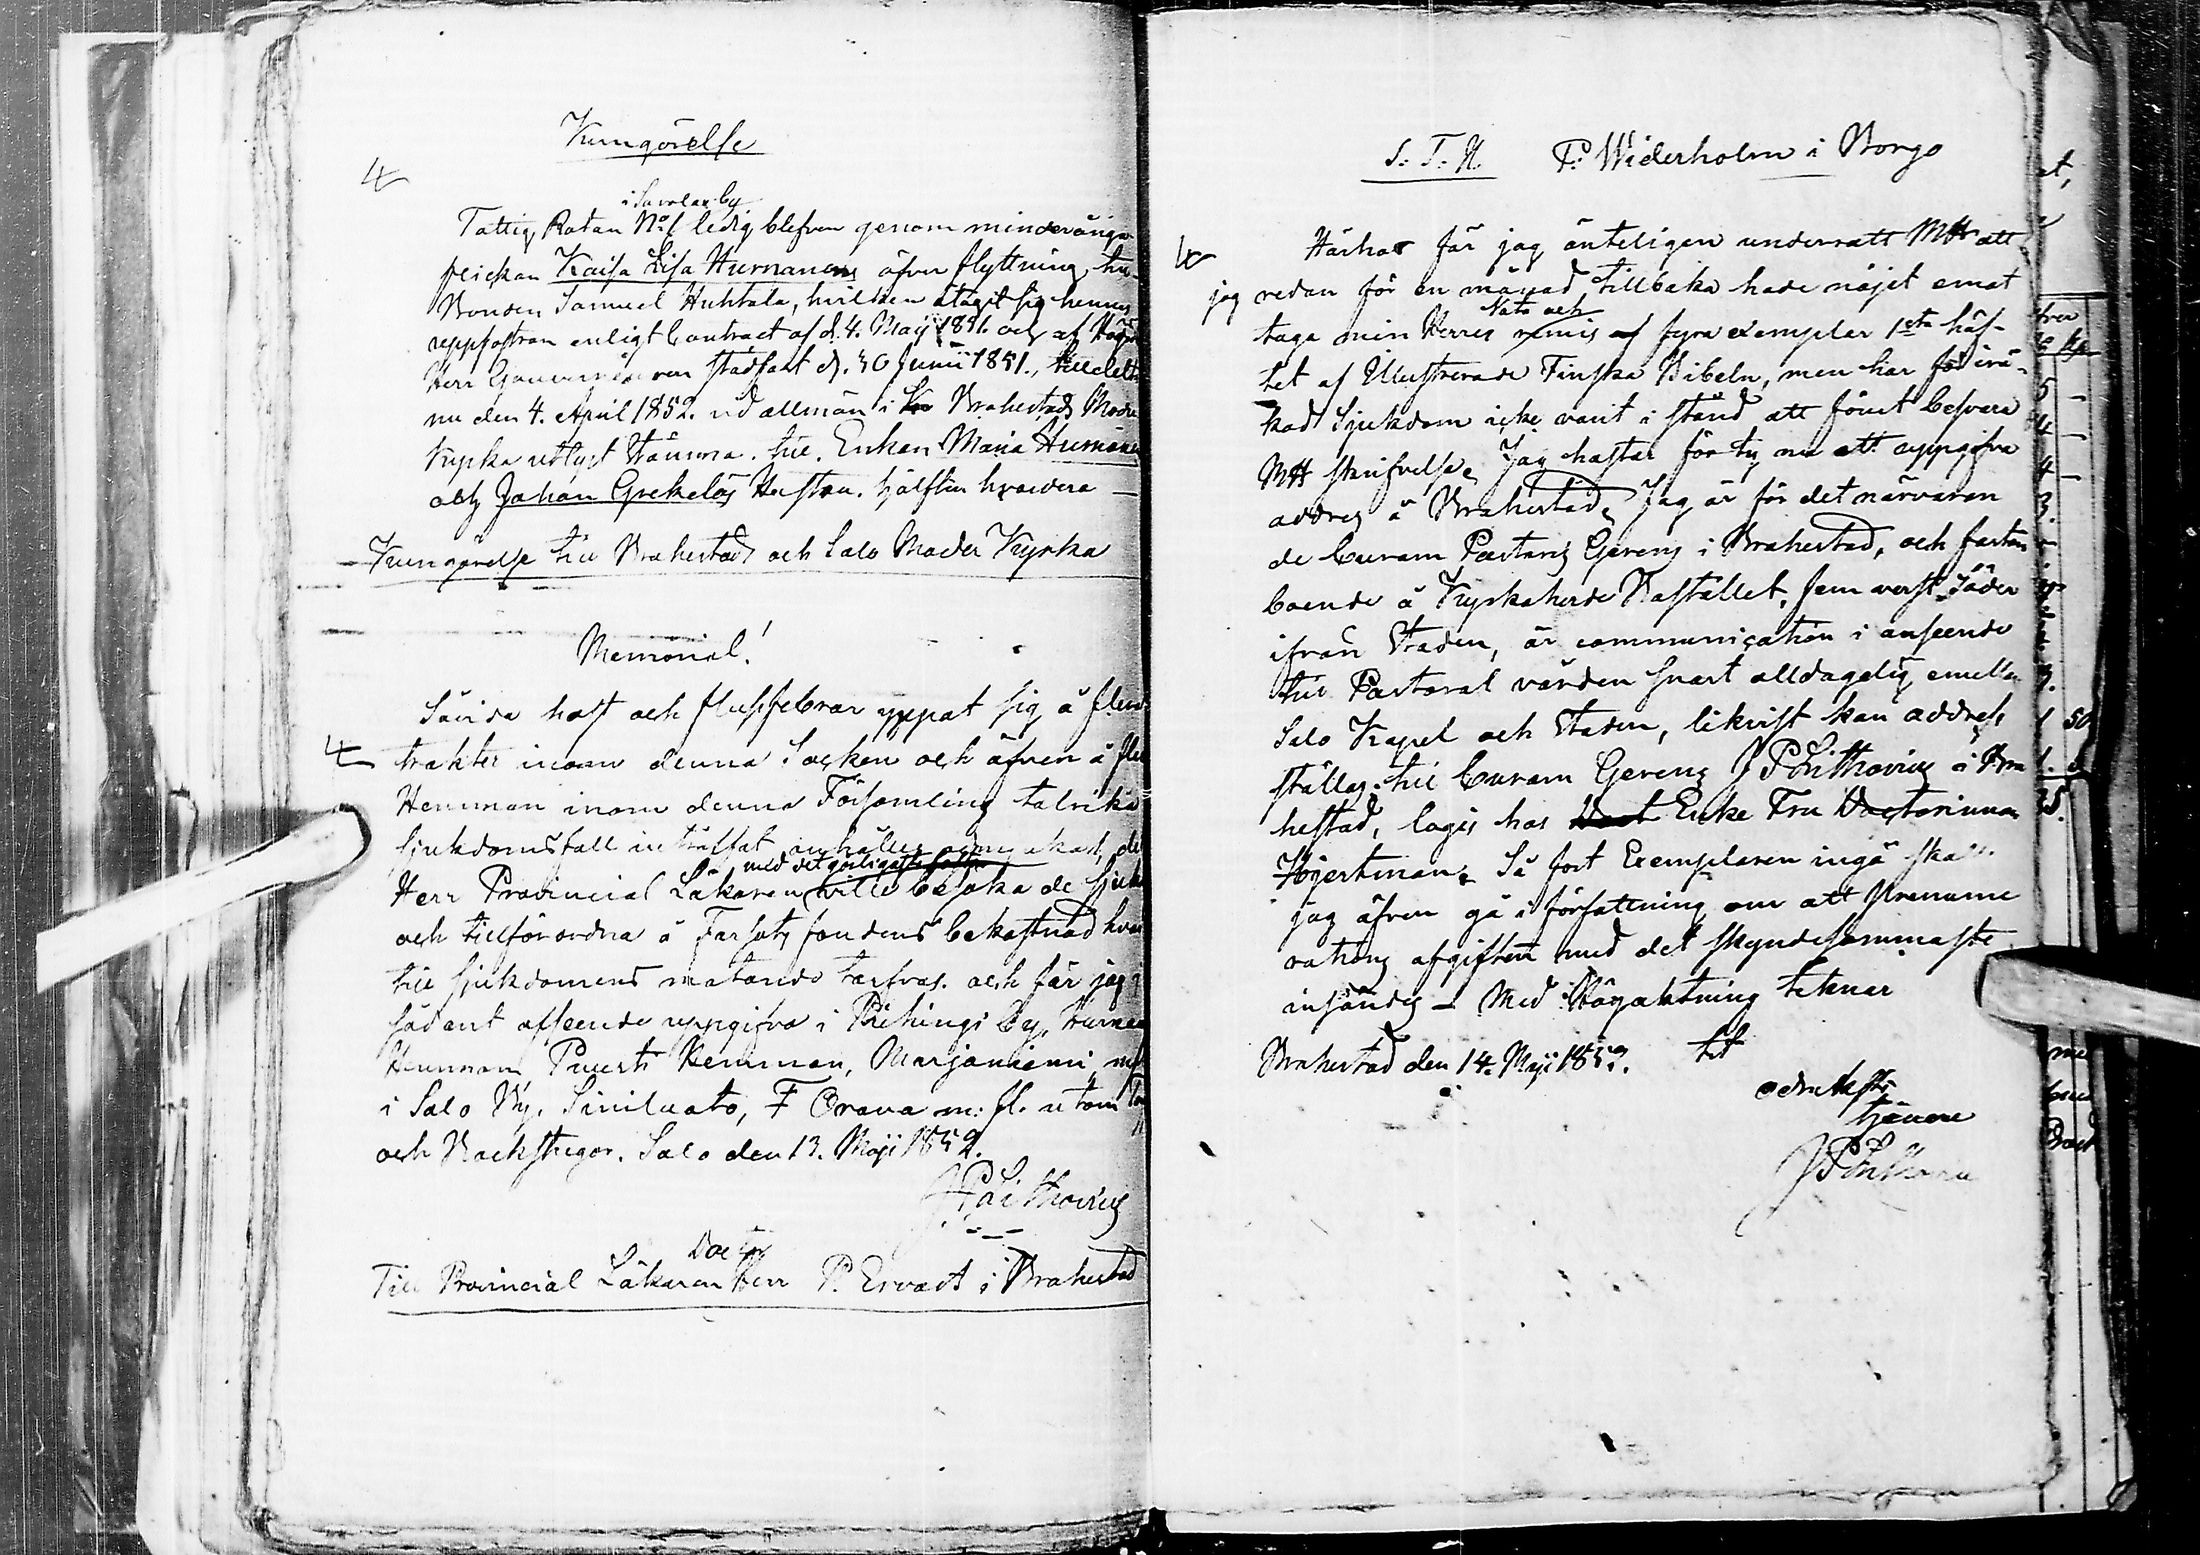 Kungörelse
4
i Savolax by
Fattig Rotan No 1 ledig blefven genom minderåriga
flickan Kaisa Lisa Hurnanens öfver flyttning till
Bonden Samuel Huhtala, hvilken åtagit sig hennes
uppfostran enligt Contract af d. 4. Maij 1851. och af Högv
Herr Gouverneuren stadfäst d. 30 Junii 1851., tilldelte
nu den 4. April 1852. vid allmän i Brahestads Moder
Kyrka utlyst Stämma. till. Enkan Maria Hurnanen
och Johan Grekeläs Hustru. hjälften hvardera —
Kungörelse till Brahestads och Salo Moder Kyrka
Memorial!
Såvida host och flussfebrar yppat sig å flera
4 trakter inom denna Socken och äfven å fler
Hemman inom denna Församling talrika
sjukdomsfall inträffat, anhålles ödmjukast, det
med det görligaste första
Herr Provincial Läkaren ville besöka de sjuka
och tillförordna å Farsots fondens bekostnad hvad
till sjukdomens motande tarfvas. och får jag i
sådant afseende uppgifva i Pithingi by, Hurna
Hemman Puusti Hemman, Marjaniemi mfl
i Salo By. Siniluoto, F Orava m: fl. utom
och Backstugor. Salo den 13. Maji 1852.
J P Lithovius
Doctor
Till Provincial Läkaren Herr P. Ervast i Brahestad
S. T. H. P. Widerholm i Borgo
4
Härhos får jag änteligen underrätta MH att
jag redan för en månad tillbaka hade nöjet emot
Nota och
taga min Herres remis af fyra exemplar 1sta häf-
tet af Illustrerade Finska Bibeln, men har för irå-
kad Sjukdom icke varit i stånd att förut besvara
MH skrifvelse, Jag hastar för ty nu att uppgifva
address å Brahestad, Jag är för det närvaran
de Curam Pastoris Gerens i Brahestad, och fastän
boende å Kyrkoherde Bostället, fem verst Söder
ifrån Staden, är communication i anseende
till Pastoral vården snart alldagelig emellan
Salo Kapel och Staden, likvist kan address
ställas till Curam Gerens J P Lithovius i Bra
hestad, logis hos Enke Fru Doctorinnan
Högertman. Så fort Exemplaren ingå skall
jag äfven gå i författning om att Prenume
rations afgiften med det skyndesammaste
insändes — Med Högaktning teknar
Brahestad den 14. Maji 1852. tit
ödmjukste
tjenare
J P Lithovius